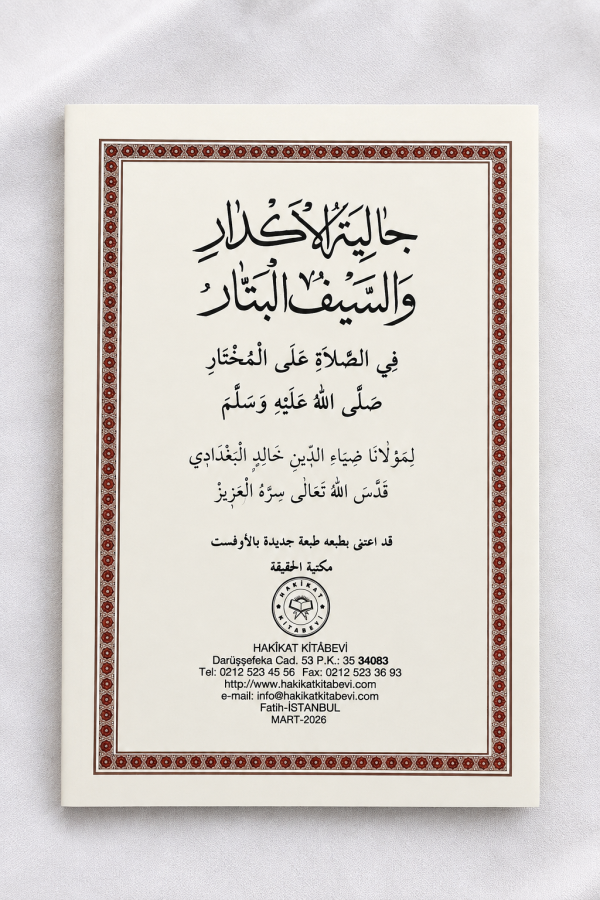 جَالِيَةُ الْاَكْدَارِ
وَالسَّيْفُ الْبَتَّارُ
فِي الصَّلاَةِ عَلَى الْمُخْتَارِ
صَلَّى اللهُ عَلَيْهِ وَسَلَّمَ
لِمَوْلَانَا ضِيَاءِ الدِّينِ خَالِدٍ الْبَغْدَادِي
قَدَّسَ اللهُ تَعَالٰى سِرَّهُ الْعَزِيزْ
قد اعتنى بطبعه طبعة جديدة بالأوفست
مكتبة الحقيقة
HAKİKAT
KİTABEVİ
HAKÎKAT KİTÂBEVİ
Darüşşefeka Cad. 53 P.K.: 35 34083
Tel: 0212 523 45 56 Fax: 0212 523 36 93
http://www.hakikatkitabevi.com
e-mail: info@hakikatkitabevi.com
Fatih-İSTANBUL
MART-2026